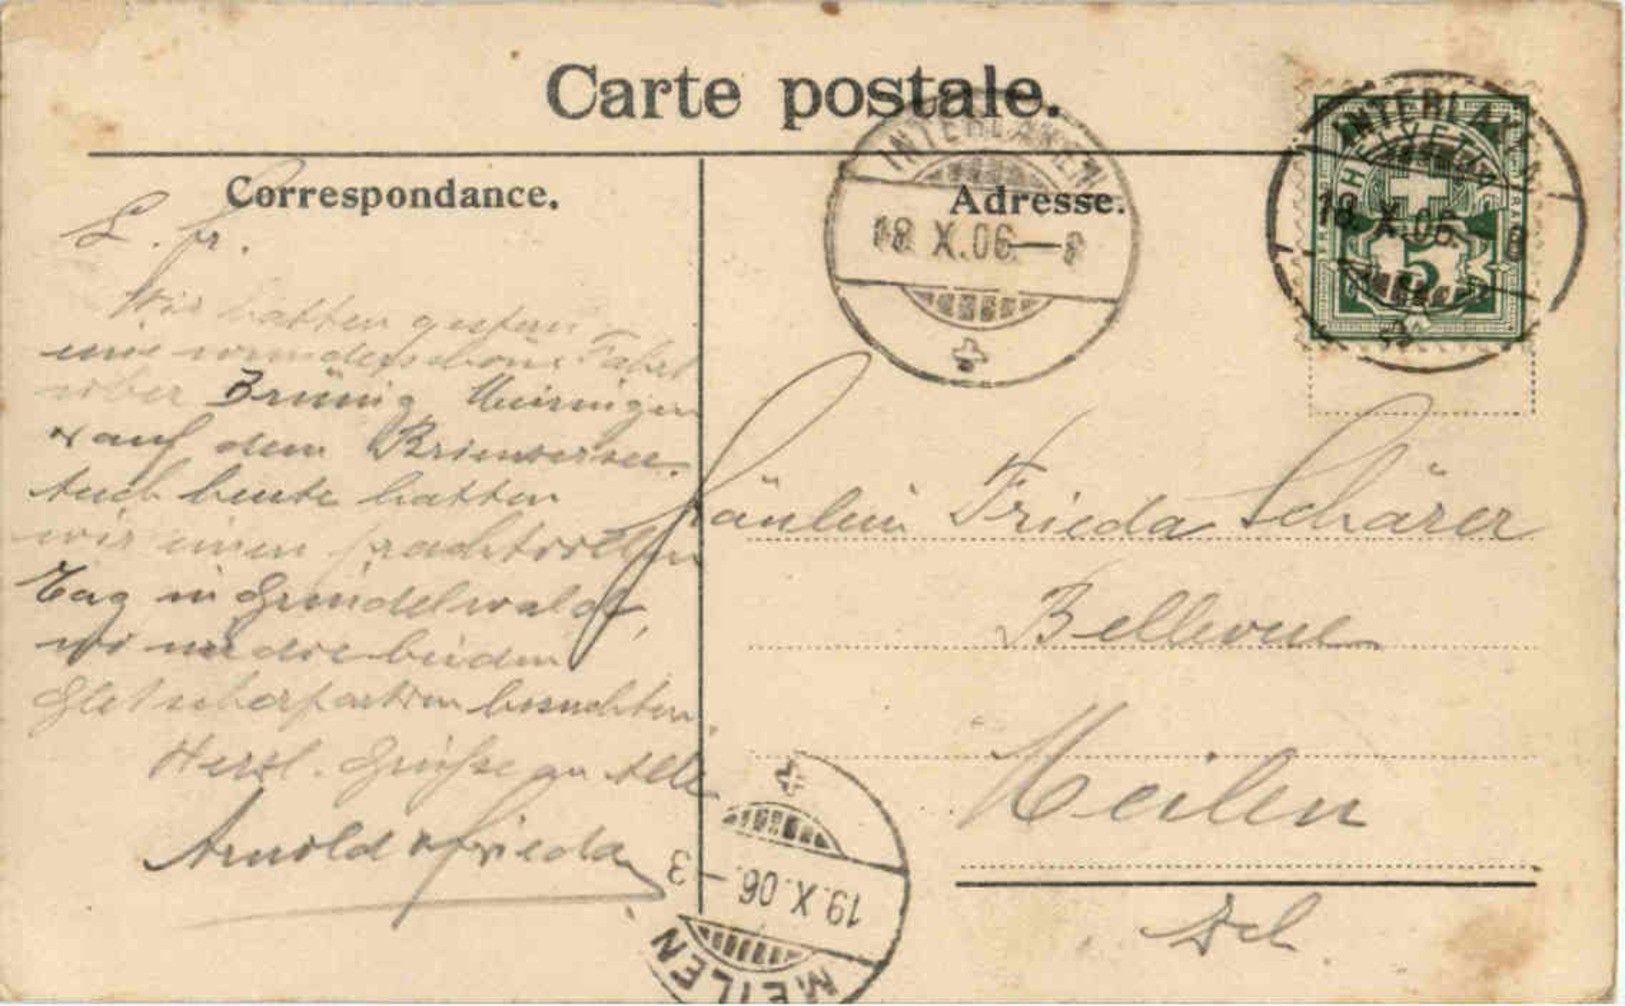 Carte postale.
Correspondance.
Adresse.
INTERLAKEN
18.X.06.—8
INTERLAKEN
18.X.06.—8
HELVETIA
5
L. Fr.
Wir hatten gestern
eine wunderschöne Fahrt
über Brünig Meiringen
& auf dem Brienzersee.
Auch heute hatten
wir einen prachtvollen
Tag in Grindelwald,
wo wir die beiden
Gletscherpartien besuchten.
Herzl. Grüsse an Alle
Arnold & Frieda
Fräulein Frieda Schärer
Bellevue
Meilen
MEILEN
19.X.06.—3